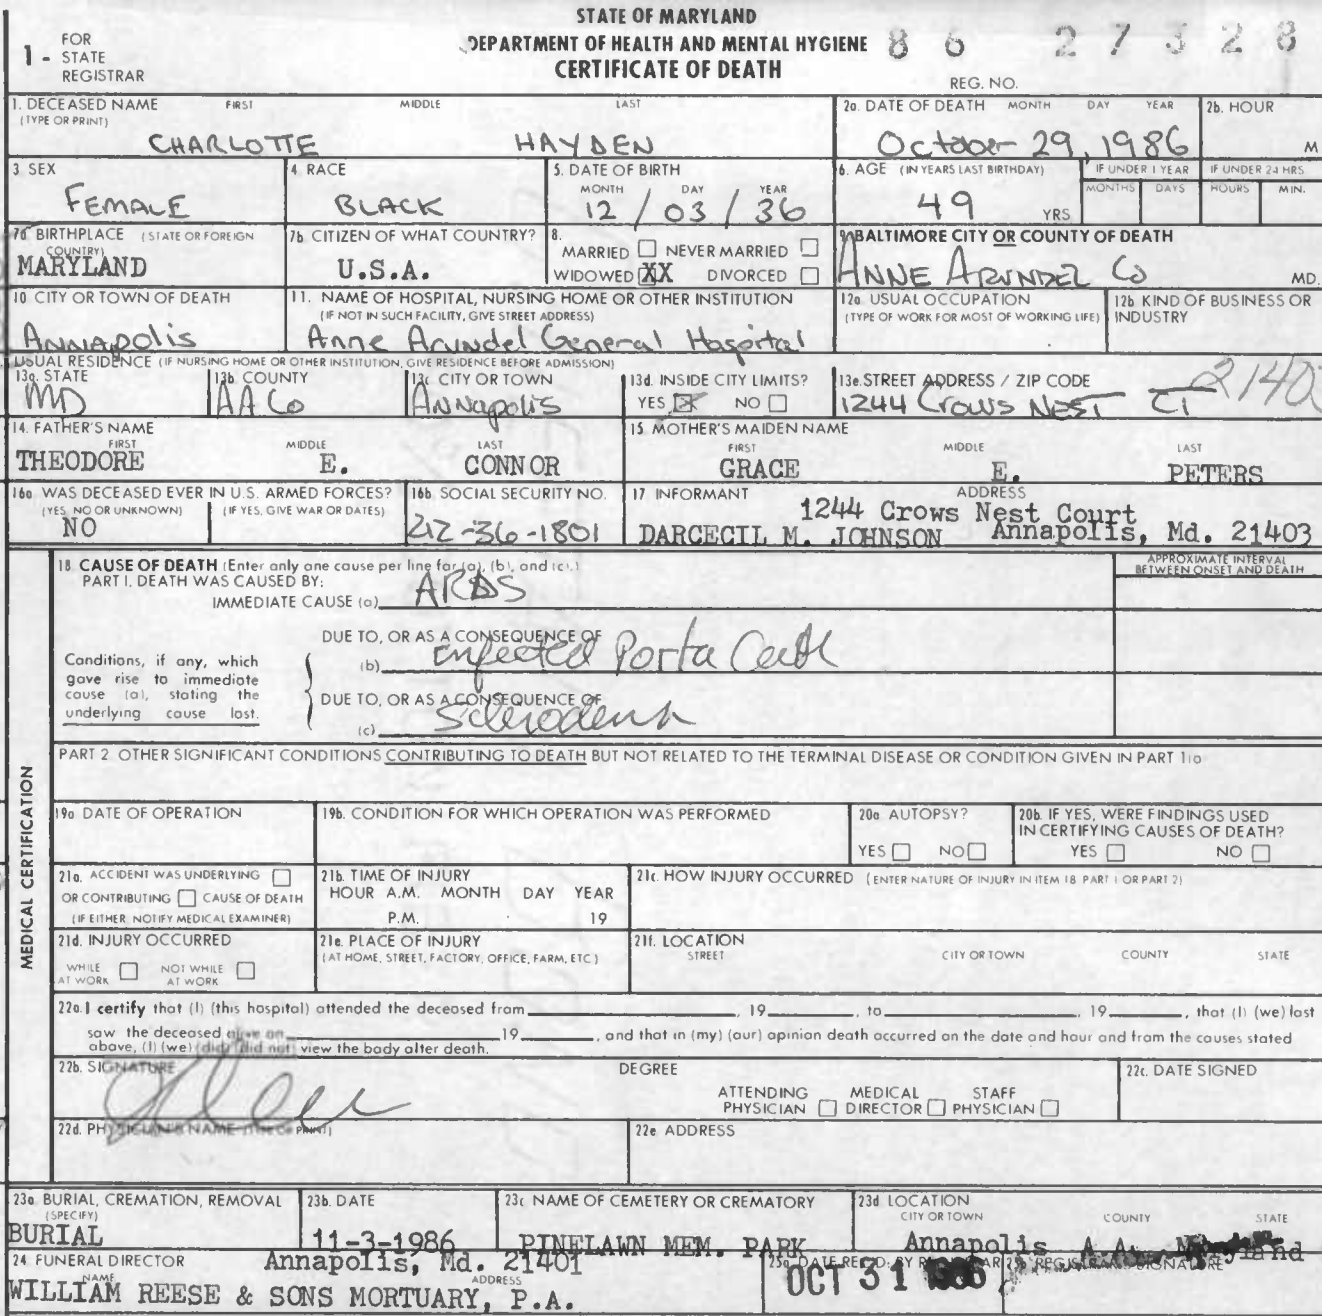 STATE OF MARYLAND
DEPARTMENT OF HEALTH AND MENTAL HYGIENE
CERTIFICATE OF DEATH
1 - FOR STATE REGISTRAR
86 27328
REG. NO.
1. DECEASED NAME FIRST MIDDLE LAST
(TYPE OR PRINT)
CHARLOTTE HAYDEN
2a. DATE OF DEATH MONTH DAY YEAR
October 29, 1986
2b. HOUR
M
3 SEX
FEMALE
4. RACE
BLACK
5. DATE OF BIRTH
MONTH DAY YEAR
12 / 03 / 36
6. AGE (IN YEARS LAST BIRTHDAY)
49 YRS
IF UNDER 1 YEAR
MONTHS DAYS
IF UNDER 24 HRS
HOURS MIN.
7a BIRTHPLACE (STATE OR FOREIGN COUNTRY)
MARYLAND
7b. CITIZEN OF WHAT COUNTRY?
U.S.A.
8.
MARRIED NEVER MARRIED
WIDOWED XX DIVORCED
9. BALTIMORE CITY OR COUNTY OF DEATH
ANNE ARUNDEL Co MD.
10 CITY OR TOWN OF DEATH
Annapolis
11. NAME OF HOSPITAL, NURSING HOME OR OTHER INSTITUTION
(IF NOT IN SUCH FACILITY, GIVE STREET ADDRESS)
Anne Arundel General Hospital
12a. USUAL OCCUPATION
(TYPE OF WORK FOR MOST OF WORKING LIFE)
12b KIND OF BUSINESS OR INDUSTRY
USUAL RESIDENCE (IF NURSING HOME OR OTHER INSTITUTION, GIVE RESIDENCE BEFORE ADMISSION)
13a. STATE
MD
13b COUNTY
AA Co
13c CITY OR TOWN
Annapolis
13d. INSIDE CITY LIMITS?
YES X NO
13e. STREET ADDRESS / ZIP CODE
1244 Crows Nest CT 21403
14. FATHER'S NAME
FIRST MIDDLE LAST
THEODORE E. CONNOR
15 MOTHER'S MAIDEN NAME
FIRST MIDDLE LAST
GRACE E. PETERS
16a WAS DECEASED EVER IN U.S. ARMED FORCES?
(YES, NO OR UNKNOWN) (IF YES, GIVE WAR OR DATES)
NO
16b. SOCIAL SECURITY NO.
212-36-1801
17 INFORMANT ADDRESS
1244 Crows Nest Court
DARCECIL M. JOHNSON Annapolis, Md. 21403
MEDICAL CERTIFICATION
18 CAUSE OF DEATH (Enter only one cause per line for (a), (b), and (c).)
PART I. DEATH WAS CAUSED BY:
IMMEDIATE CAUSE (a) ARDS
APPROXIMATE INTERVAL BETWEEN ONSET AND DEATH
Conditions, if any, which gave rise to immediate cause (a), stating the underlying cause last.
DUE TO, OR AS A CONSEQUENCE OF
(b) infected Porta Cath
DUE TO, OR AS A CONSEQUENCE OF
(c) Scleroderma
PART 2 OTHER SIGNIFICANT CONDITIONS CONTRIBUTING TO DEATH BUT NOT RELATED TO THE TERMINAL DISEASE OR CONDITION GIVEN IN PART 1(a
19a DATE OF OPERATION
19b. CONDITION FOR WHICH OPERATION WAS PERFORMED
20a AUTOPSY?
YES NO
20b. IF YES, WERE FINDINGS USED IN CERTIFYING CAUSES OF DEATH?
YES NO
21a. ACCIDENT WAS UNDERLYING
OR CONTRIBUTING CAUSE OF DEATH
(IF EITHER, NOTIFY MEDICAL EXAMINER)
21b. TIME OF INJURY
HOUR A.M. MONTH DAY YEAR
P.M. 19
21c. HOW INJURY OCCURRED (ENTER NATURE OF INJURY IN ITEM 18 PART 1 OR PART 2)
21d. INJURY OCCURRED
WHILE AT WORK NOT WHILE AT WORK
21e. PLACE OF INJURY
(AT HOME, STREET, FACTORY, OFFICE, FARM, ETC)
21f. LOCATION
STREET CITY OR TOWN COUNTY STATE
22a. I certify that (I) (this hospital) attended the deceased from , 19 , to , 19 , that (I) (we) last
saw the deceased alive on 19 , and that in (my) (our) opinion death occurred on the date and hour and from the causes stated
above, (I) (we) (did) (did not) view the body after death.
22b. SIGNATURE
DEGREE
ATTENDING PHYSICIAN MEDICAL DIRECTOR STAFF PHYSICIAN
22c. DATE SIGNED
22d. PHYSICIAN'S NAME (TYPE OR PRINT)
22e ADDRESS
23a BURIAL, CREMATION, REMOVAL
(SPECIFY)
BURIAL
23b. DATE
11-3-1986
23c NAME OF CEMETERY OR CREMATORY
PINELAWN MEM. PARK
23d LOCATION
CITY OR TOWN COUNTY STATE
Annapolis A.A. Maryland
24 FUNERAL DIRECTOR
NAME ADDRESS
Annapolis, Md. 21401
WILLIAM REESE & SONS MORTUARY, P.A.
25a DATE REC'D. BY REGISTRAR
OCT 31 1986
REGISTRAR'S SIGNATURE